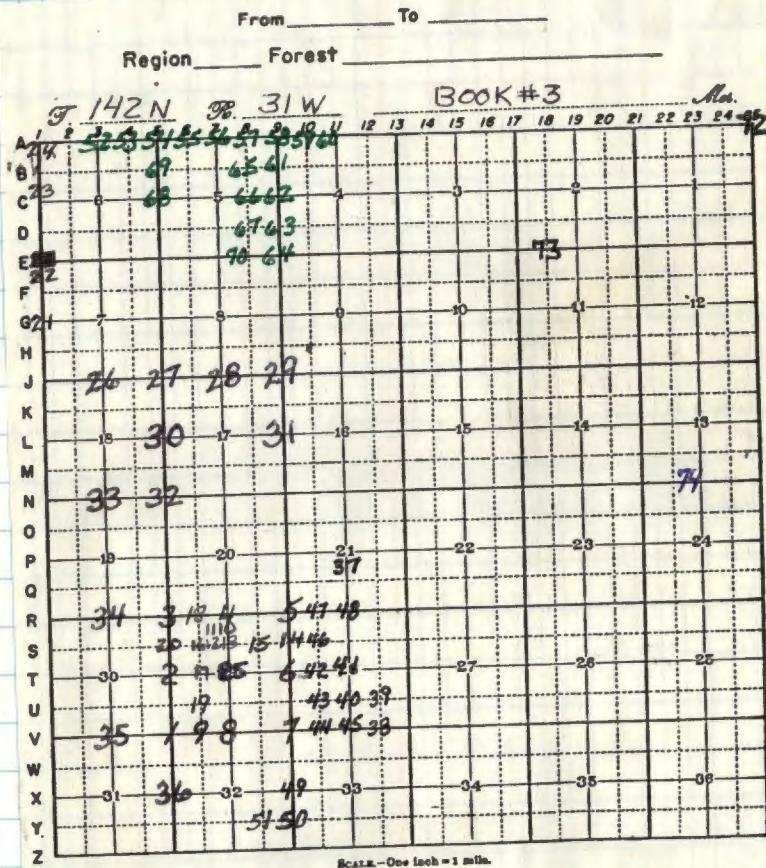 From To
Region Forest
T. 142 N R. 31 W BOOK #3 Mer.
1 2 3 5 10 11 12 13 14 15 16 17 18 19 20 21 22 23 24
A 24 52 53 54 55 56 57 58 59 60 72
B 69 65 61
C 23 6 68 5 66 62 4 3 2 1
D 67 63
E 22 70 64 73
F
G 21 7 8 9 10 11 12
H
J 26 27 28 29
K
L 18 30 17 31 16 15 14 13
M
N 33 32 74
O
P 19 20 21 22 23 24
37
Q
R 34 3 18 4 5 47 48
11 10
S 20 15 14 46
T 30 2 17 25 6 42 41 27 26 25
U 19 43 40 39
V 35 1 9 8 7 44 45 38
W
X 31 36 32 49 33 34 35 36
Y 51 50
Z
SCALE.—One inch = 1 mile.